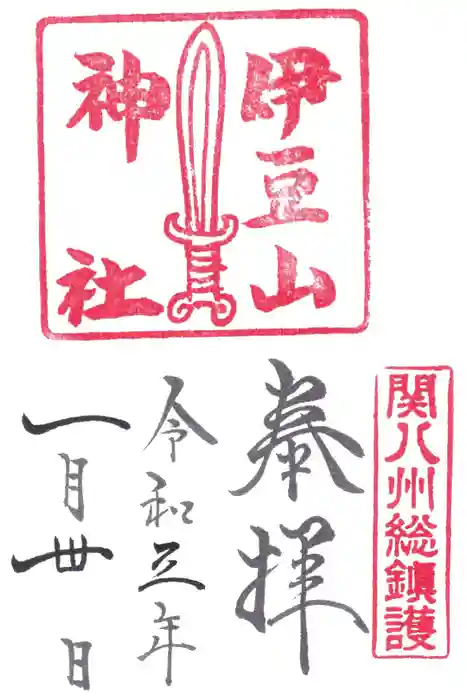 伊豆山
神社
関八州総鎭護
奉拝
令和三年
一月丗日